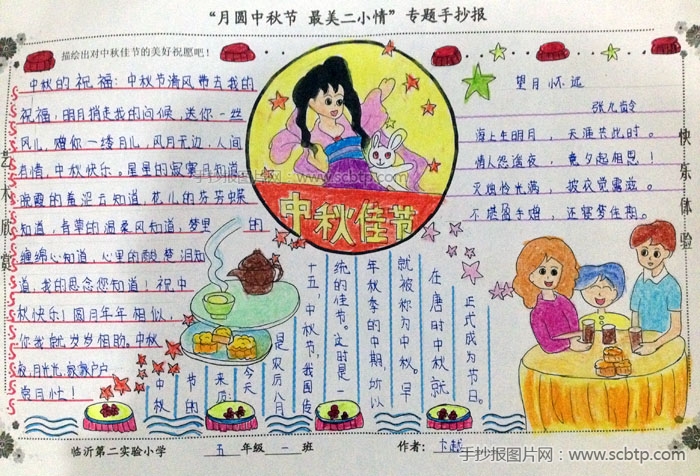 “月圆中秋节 最美二小情”专题手抄报
描绘出对中秋佳节的美好祝愿吧！
艺术欣赏
中秋的祝福：中秋节清风带去我的
祝福，明月捎走我的问候，送你一丝
风儿，赠你一缕月儿，风月无边，人间
有情，中秋快乐。星星的寂寞月知道，
晚霞的羞涩云知道，花儿的芬芳蝶
知道，青草的温柔风知道，梦里 的
缠绵心知道，心里的酸楚泪知
道，我的思念您知道！祝中
秋快乐！圆月年年相似，
你我就岁岁相盼。中秋
夜，月光光，户户
赏月忙！
中秋佳节
望月怀远
张九龄
海上生明月，天涯共此时。
情人怨遥夜，竟夕起相思！
灭烛怜光满，披衣觉露滋。
不堪盈手赠，还寝梦佳期。
快乐体验
中秋
节的
来历：
今天
是农历八月
十五，中秋节，我国传
统的佳节。这时是一
年秋季的中期，所以
就被称为中秋。早
在唐时中秋就
正式成为节日。
临沂第二实验小学 五 年级 一 班 作者：卞越
手抄报图片网 - www.scbtp.com
手抄报图片网 - www.scbtp.com